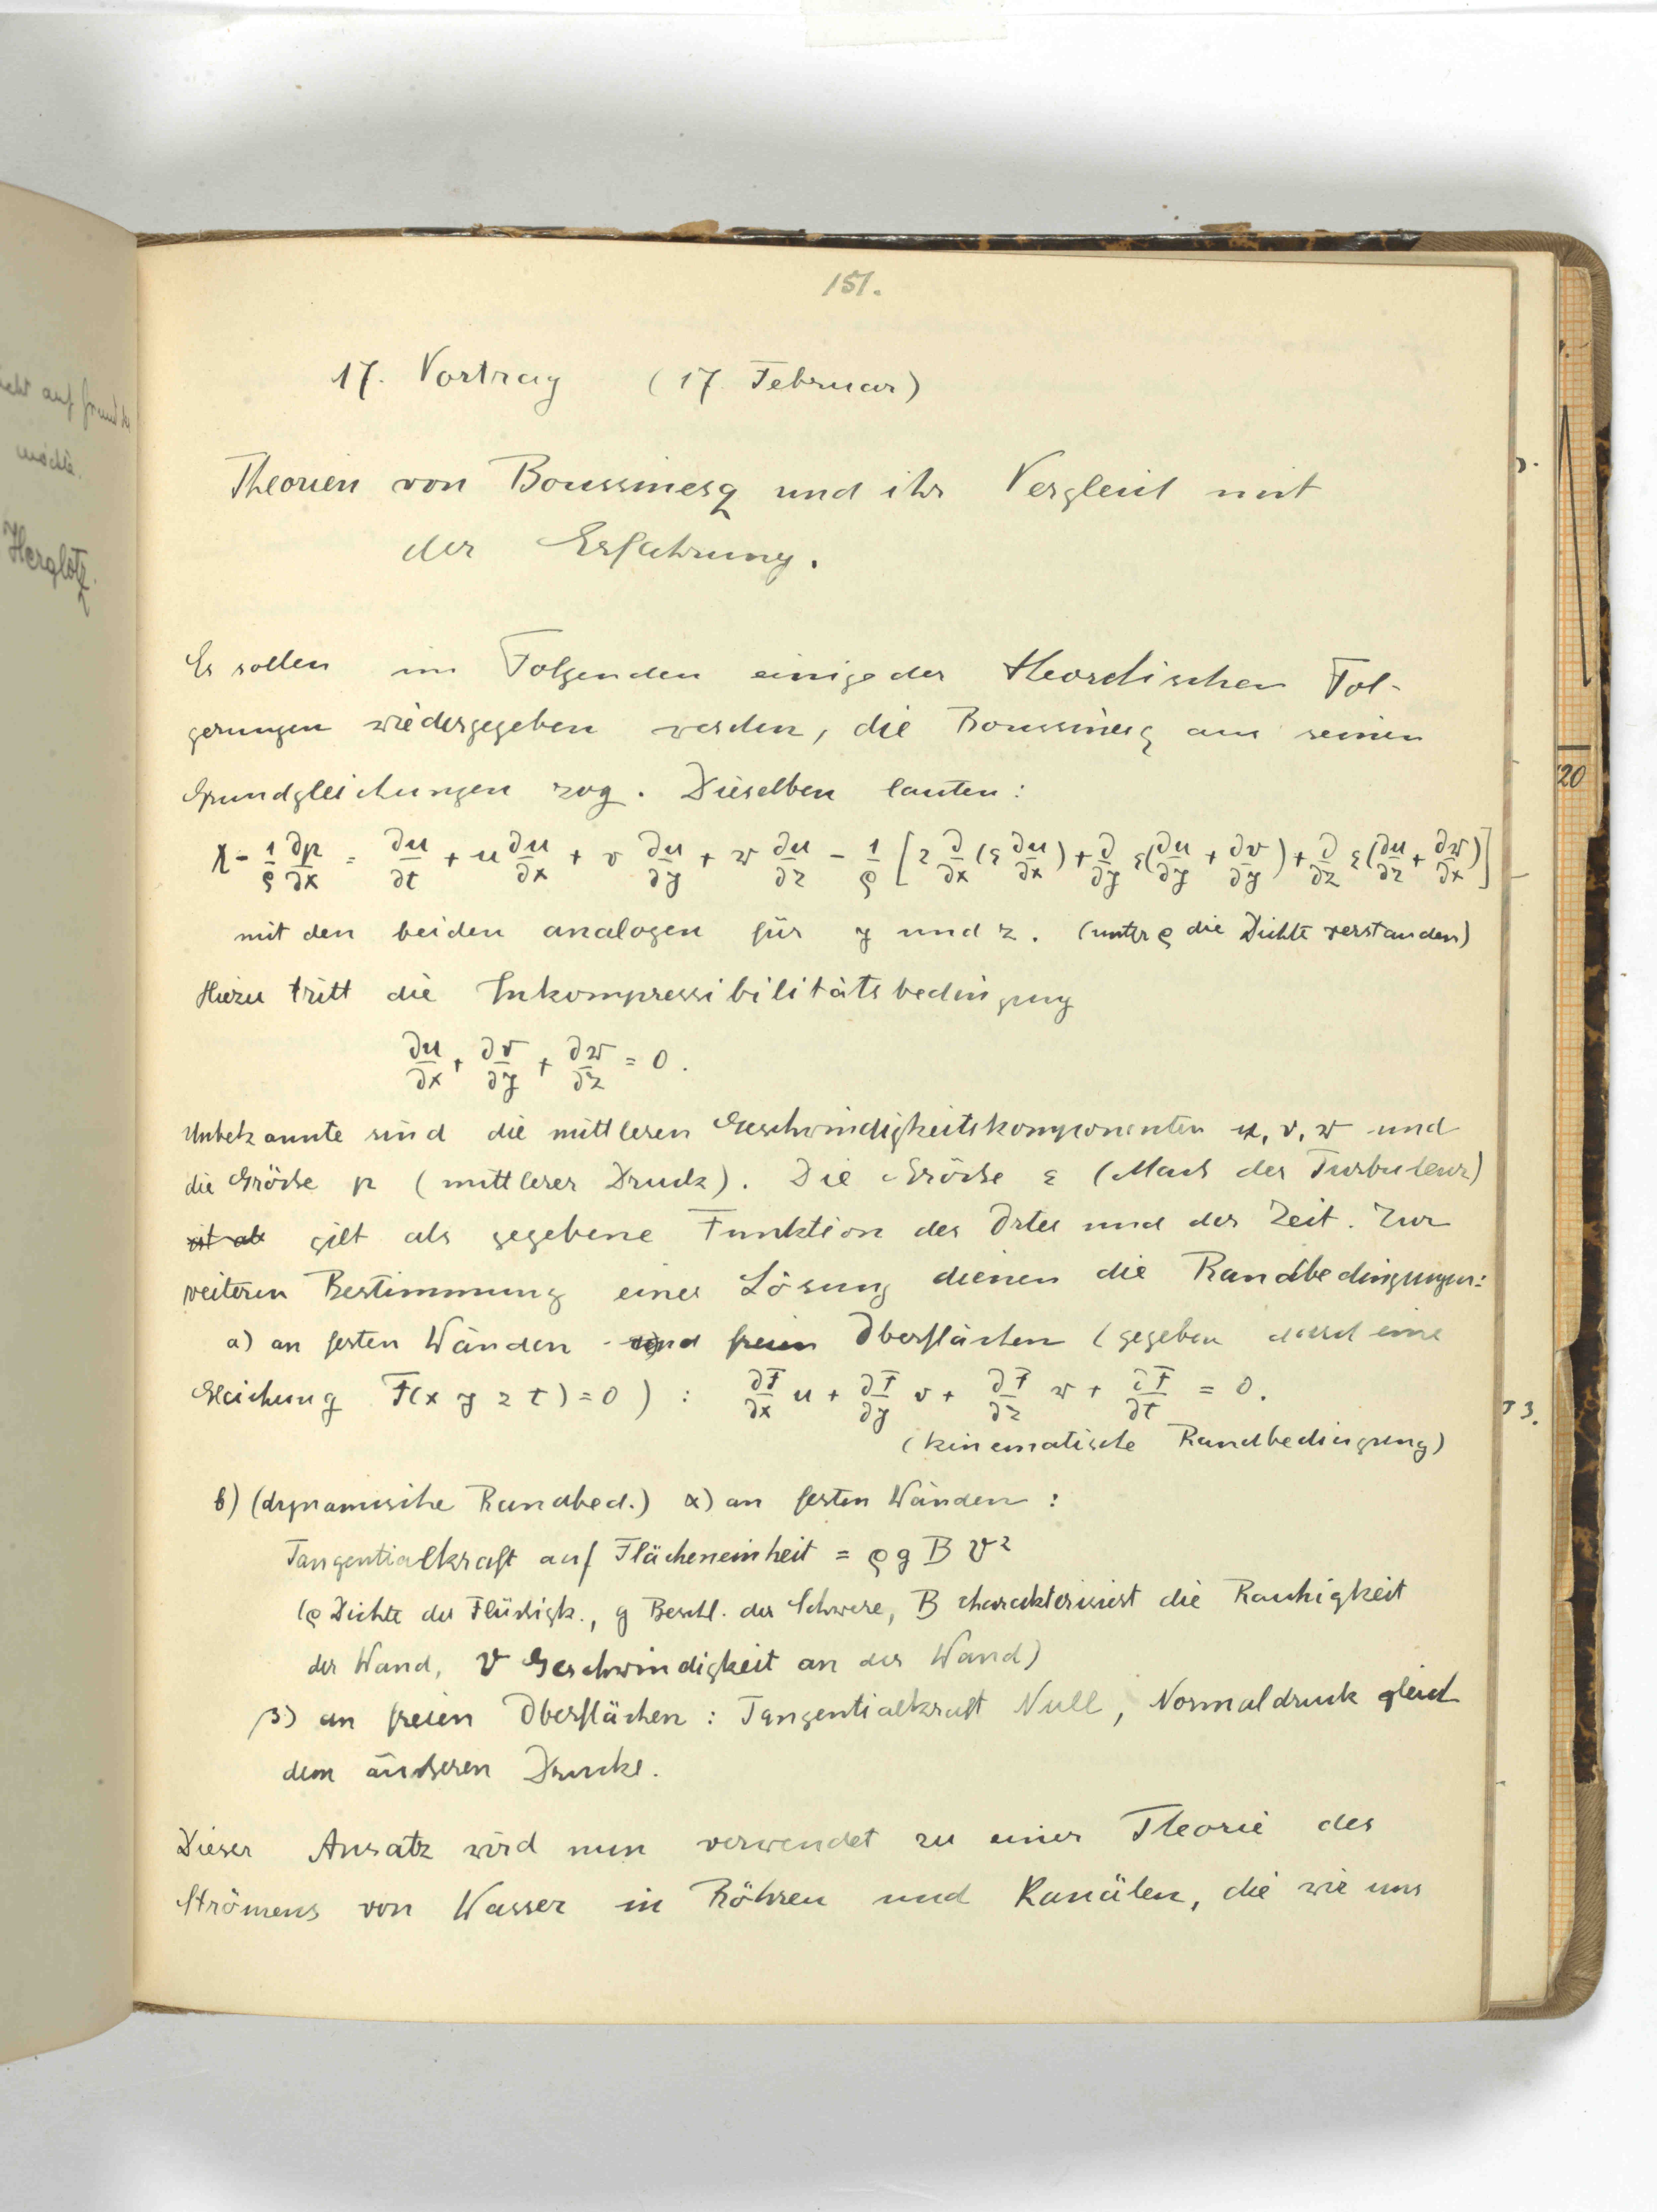 151.
17. Vortrag (17 Februar)
Theorien von Boussinesq und ihr Vergleich mit
der Erfahrung.
Es sollen im Folgenden einige der theoretischen Fol-
gerungen wiedergegeben werden, die Boussinesq aus seinen
Grundgleichungen zog. Dieselben lauten:
X - 1/ϱ ∂p/∂x = ∂u/∂t + u ∂u/∂x + v ∂u/∂y + w ∂u/∂z - 1/ϱ [2 ∂/∂x (ε ∂u/∂x) + ∂/∂y ε(∂u/∂y + ∂v/∂y) + ∂/∂z ε(∂u/∂z + ∂w/∂x)]
mit den beiden analogen für y und z. (unter ϱ die Dichte verstanden)
Hiezu tritt die Inkompressibilitätsbedingung
∂u/∂x + ∂v/∂y + ∂w/∂z = 0.
Unbekannte sind die mittleren Geschwindigkeitskomponenten u, v, w und
die Grösse p (mittlerer Druck). Die Grösse ε (Mass der Turbulenz)
ist als gilt als gegebene Funktion des Ortes und der Zeit. Zur
weiteren Bestimmung einer Lösung dienen die Randbedingungen:
a) an festen Wänden und freien Oberflächen (gegeben durch eine
Gleichung F(x y z t) = 0) : ∂F/∂x u + ∂F/∂y v + ∂F/∂z w + ∂F/∂t = 0.
(kinematische Randbedingung)
b) (dynamische Randbed.) α) an festen Wänden :
Tangentialkraft auf Flächeneinheit = ϱ g B V²
(ϱ Dichte der Flüssigk., g Beschl. der Schwere, B charakterisiert die Rauhigkeit
der Wand, V Geschwindigkeit an der Wand)
β) an freien Oberflächen : Tangentialkraft Null, Normaldruck gleich
dem äusseren Drucke.
Dieser Ansatz wird nun verwendet zu einer Theorie des
Strömens von Wasser in Röhren und Kanälen, die wir uns
auf
möchte.
Herglotz.
20
3.